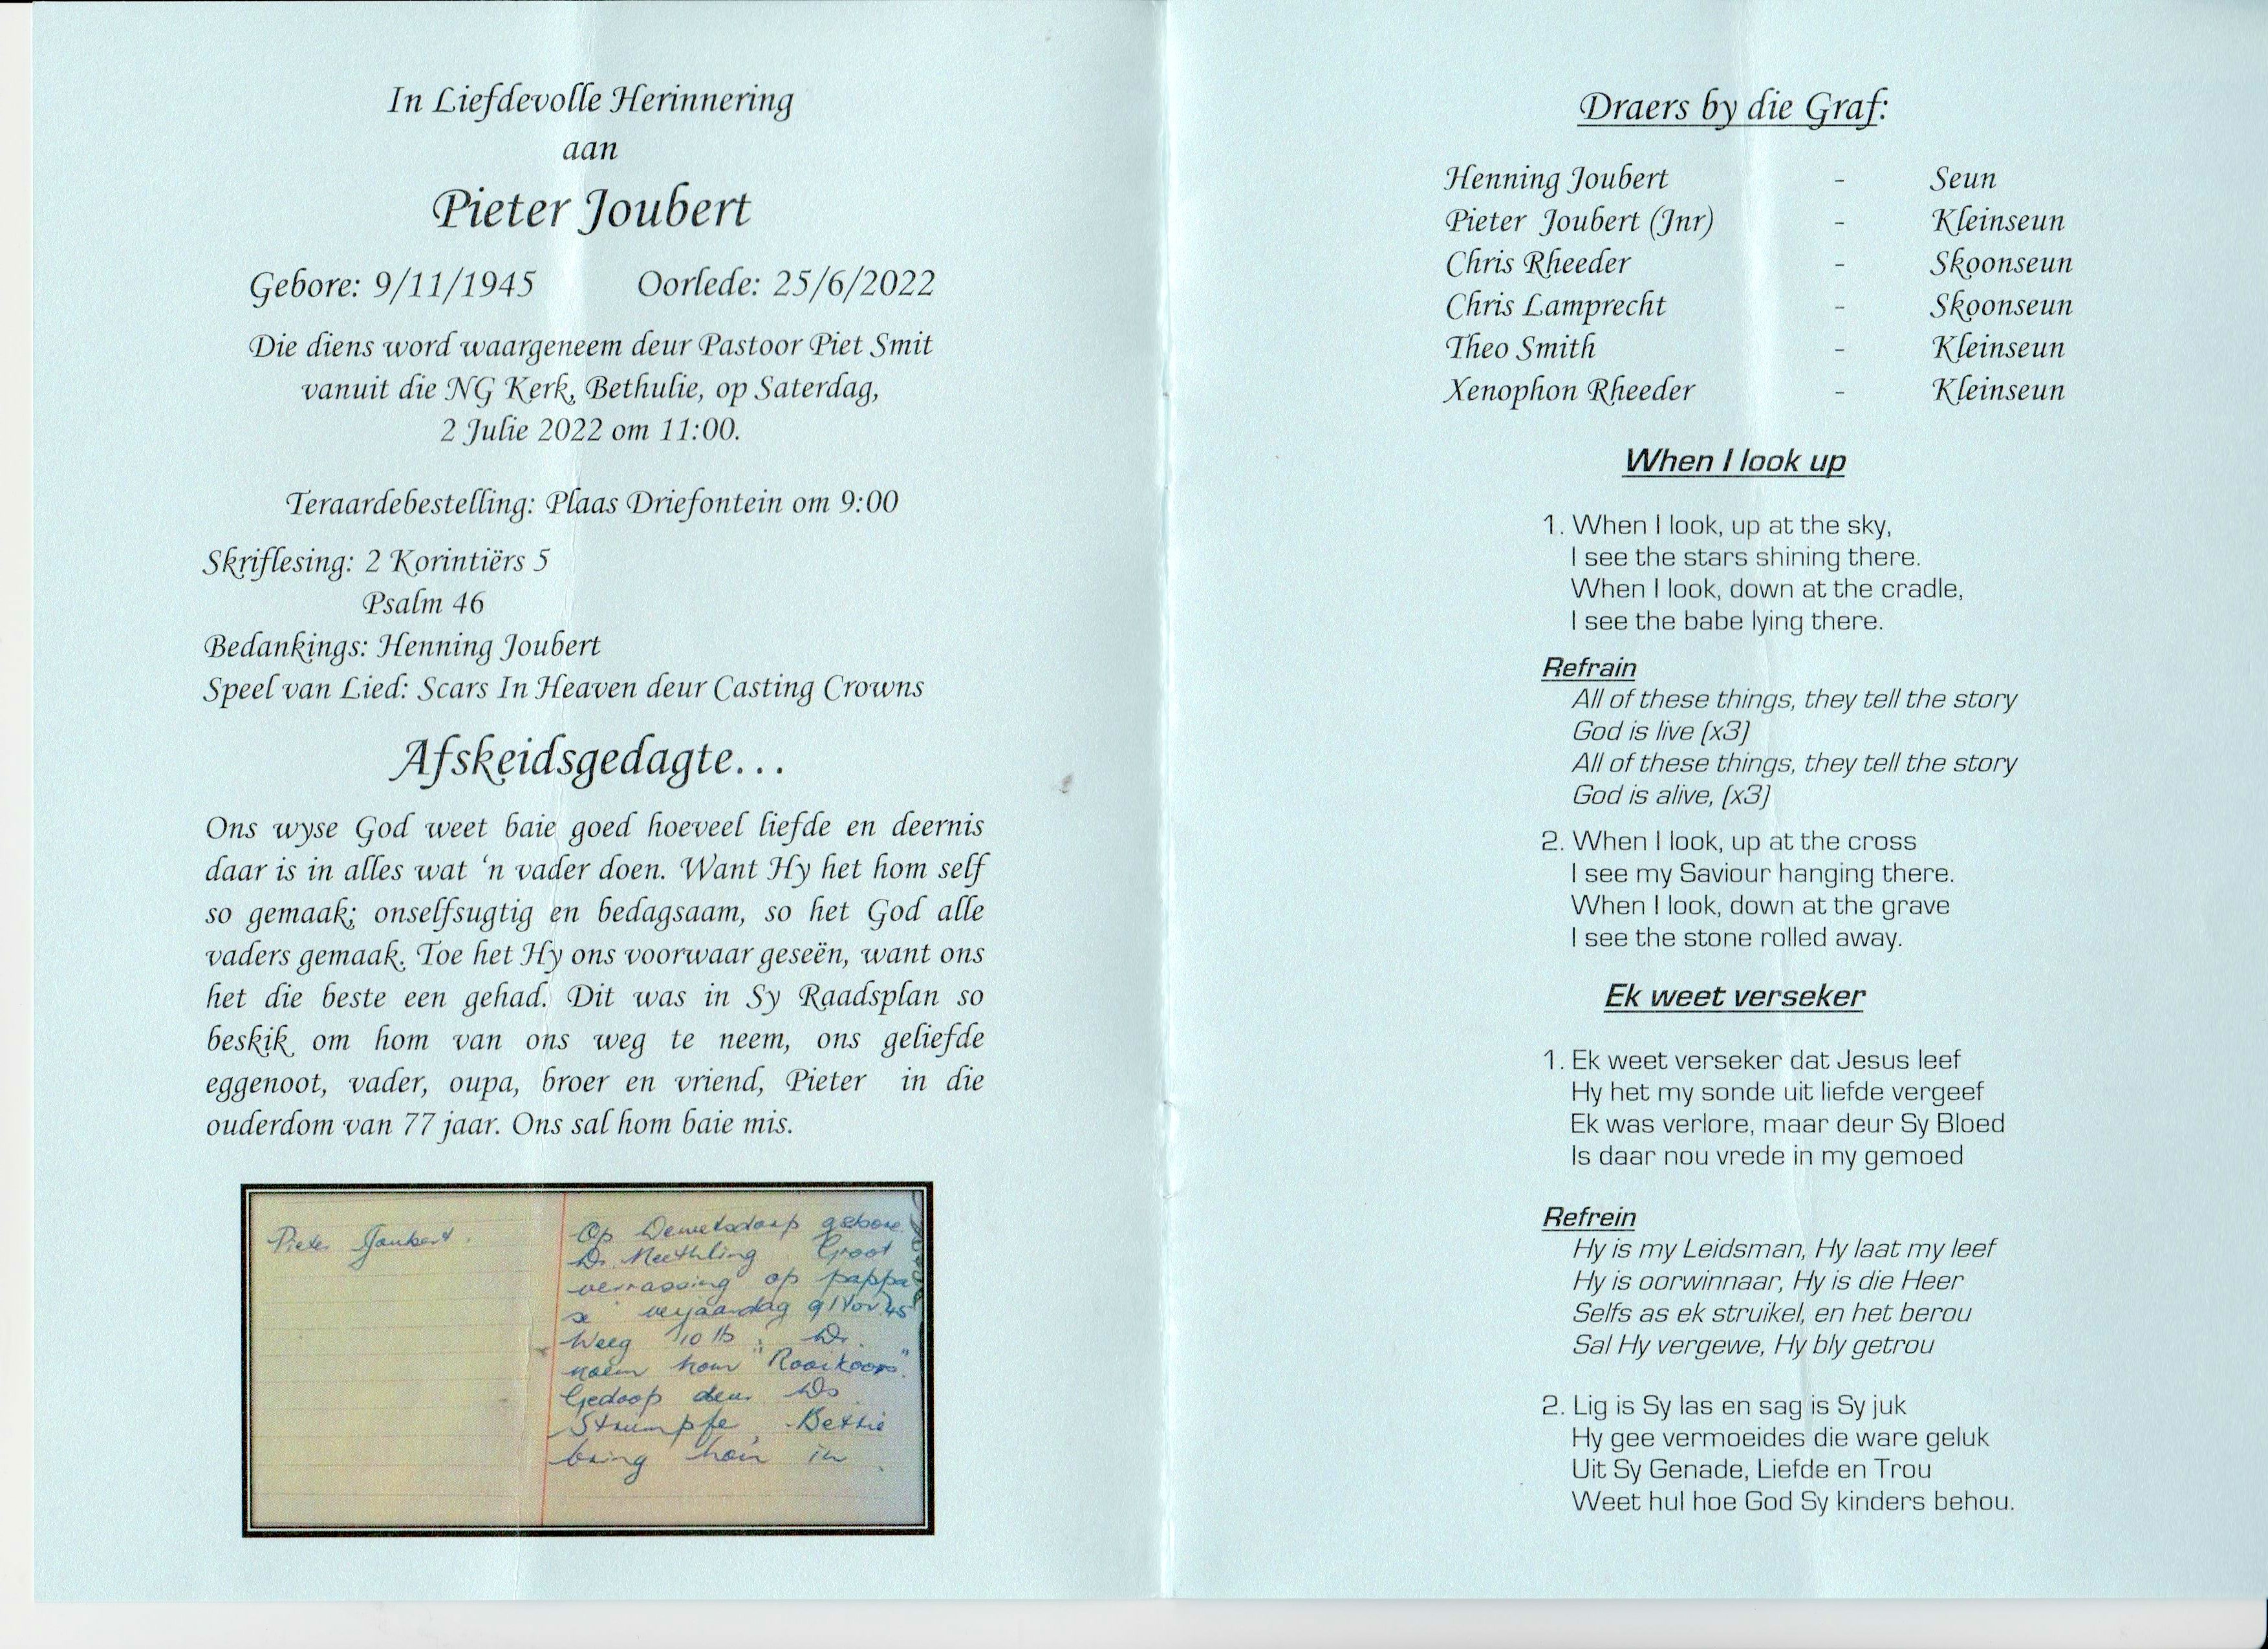 In Liefdevolle Herinnering
aan
Pieter Joubert
Gebore: 9/11/1945 Oorlede: 25/6/2022
Die diens word waargeneem deur Pastoor Piet Smit
vanuit die NG Kerk, Bethulie, op Saterdag,
2 Julie 2022 om 11:00.
Teraardebestelling: Plaas Driefontein om 9:00
Skriflesing: 2 Korintiërs 5
Psalm 46
Bedankings: Henning Joubert
Speel van Lied: Scars In Heaven deur Casting Crowns
Afskeidsgedagte...
Ons wyse God weet baie goed hoeveel liefde en deernis
daar is in alles wat ‘n vader doen. Want Hy het hom self
so gemaak; onselfsugtig en bedagsaam, so het God alle
vaders gemaak. Toe het Hy ons voorwaar geseën, want ons
het die beste een gehad. Dit was in Sy Raadsplan so
beskik om hom van ons weg te neem, ons geliefde
eggenoot, vader, oupa, broer en vriend, Pieter in die
ouderdom van 77 jaar. Ons sal hom baie mis.
Pieter Joubert.
Op Dewetsdorp gebore.
Dr. Meethling Groot
verrassing op pappa
se verjaardag 9/Nov.45
Weeg 10 lb. Dr.
noem hom "Rooikoors".
Gedoop deur Ds
Strumpfe, Bettie
bring hom in
Draers by die Graf:
Henning Joubert - Seun
Pieter Joubert (Jnr) - Kleinseun
Chris Rheeder - Skoonseun
Chris Lamprecht - Skoonseun
Theo Smith - Kleinseun
Xenophon Rheeder - Kleinseun
When I look up
1. When I look, up at the sky,
I see the stars shining there.
When I look, down at the cradle,
I see the babe lying there.
Refrain
All of these things, they tell the story
God is live (x3)
All of these things, they tell the story
God is alive, (x3)
2. When I look, up at the cross
I see my Saviour hanging there.
When I look, down at the grave
I see the stone rolled away.
Ek weet verseker
1. Ek weet verseker dat Jesus leef
Hy het my sonde uit liefde vergeef
Ek was verlore, maar deur Sy Bloed
Is daar nou vrede in my gemoed
Refrein
Hy is my Leidsman, Hy laat my leef
Hy is oorwinnaar, Hy is die Heer
Selfs as ek struikel, en het berou
Sal Hy vergewe, Hy bly getrou
2. Lig is Sy las en sag is Sy juk
Hy gee vermoeides die ware geluk
Uit Sy Genade, Liefde en Trou
Weet hul hoe God Sy kinders behou.